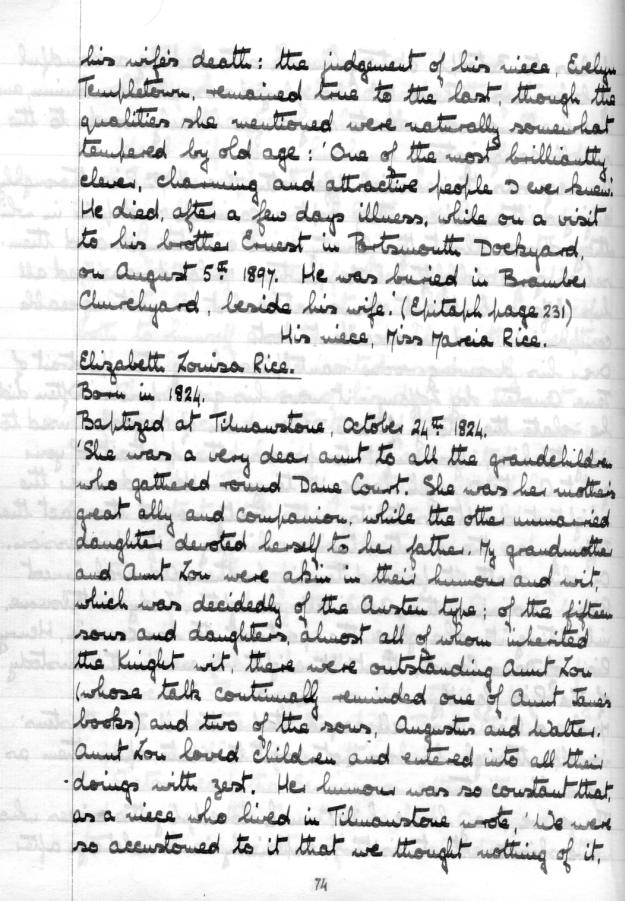 his wife's death: the judgement of his niece, Evelyn
Templetown, remained true to the last, though the
qualities she mentioned were naturally somewhat
tempered by old age: 'One of the most brilliantly
clever, charming and attractive people I ever knew.'
He died, after a few days illness, while on a visit
to his brother Ernest in Portsmouth Dockyard,
on August 5th 1897. He was buried in Bramber
Churchyard, beside his wife.' (Epitaph page 231)
His niece, Miss Marcia Rice.
Elizabeth Louisa Rice.
Born in 1824.
Baptized at Tilmanstone, October 24th 1824.
'She was a very dear aunt to all the grandchildren
who gathered round Dane Court. She was her mother's
great ally and companion, while the other unmarried
daughter devoted herself to her father. My grandmother
and Aunt Lou were akin in their humour and wit,
which was decidedly of the Austen type; of the fifteen
sons and daughters, almost all of whom inherited
the Knight wit, there were outstanding Aunt Lou
(whose talk continually reminded one of Aunt Jane's
books) and two of the sons, Augustus and Walter.
Aunt Lou loved children and entered into all their
doings with zest. Her humour was so constant that,
as a niece who lived in Tilmanstone wrote, 'We were
so accustomed to it that we thought nothing of it,
74